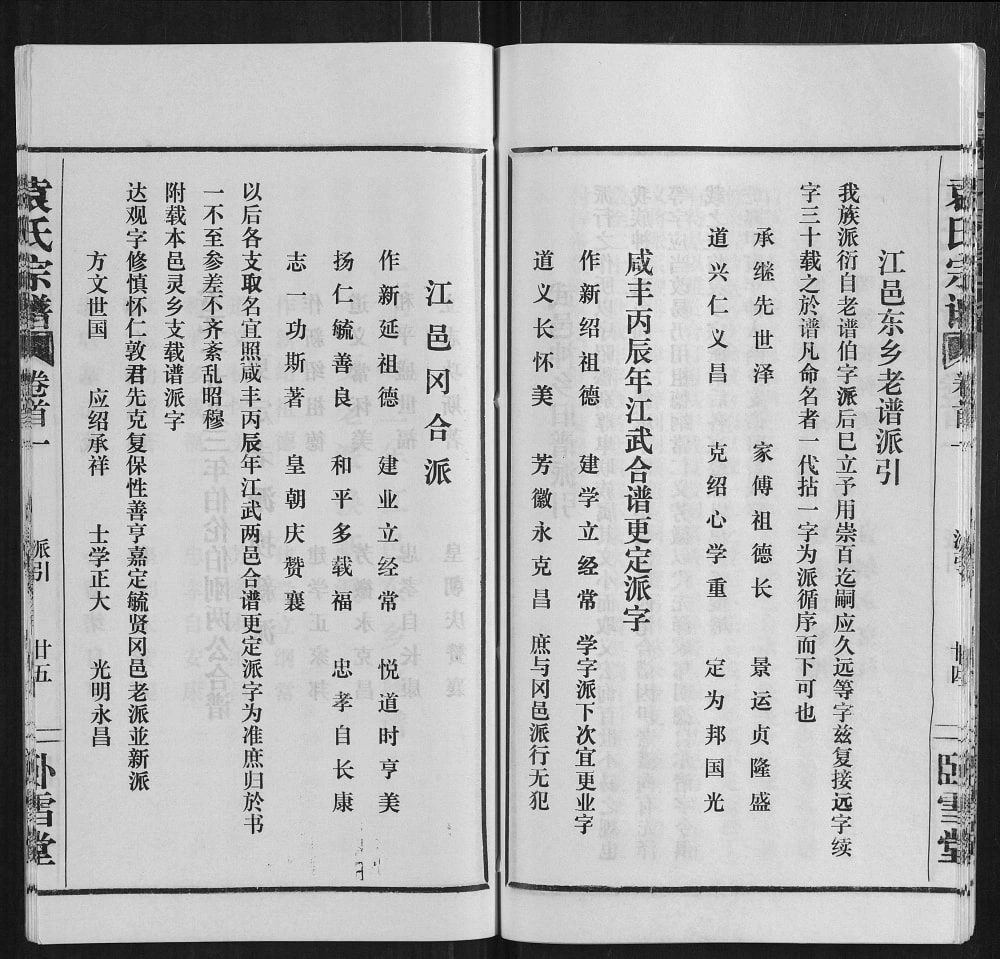 江邑东乡老谱派引
我族派衍自老谱伯字派后巳立予用崇百迄嗣应久远等字兹复接远字续
字三十载之於谱凡命名者一代拈一字为派循序而下可也
承继先世泽 家傅祖德长 景运贞隆盛
道兴仁义昌 克绍心学重 定为邦国光
咸丰丙辰年江武合谱更定派字
作新绍祖德 建学立经常 学字派下次宜更业字
道义长怀美 芳徽永克昌 庶与冈邑派行无犯
袁氏宗谱 卷首一 派引 廿四 卧雪堂
江邑冈合派
作新延祖德 建业立经常 悦道时亨美
扬仁毓善良 和平多载福 忠孝自长康
志一功斯著 皇朝庆赞襄
以后各支取名宜照咸丰丙辰年江武两邑合谱更定派字为准庶归於书
一不至参差不齐紊乱昭穆
附载本邑灵乡支载谱派字
达观字修慎怀仁敦君先克复保性善亨嘉定毓贤冈邑老派並新派
方文世国 应绍承祥 士学正大 光明永昌
袁氏宗谱 卷首一 派引 廿五 卧雪堂